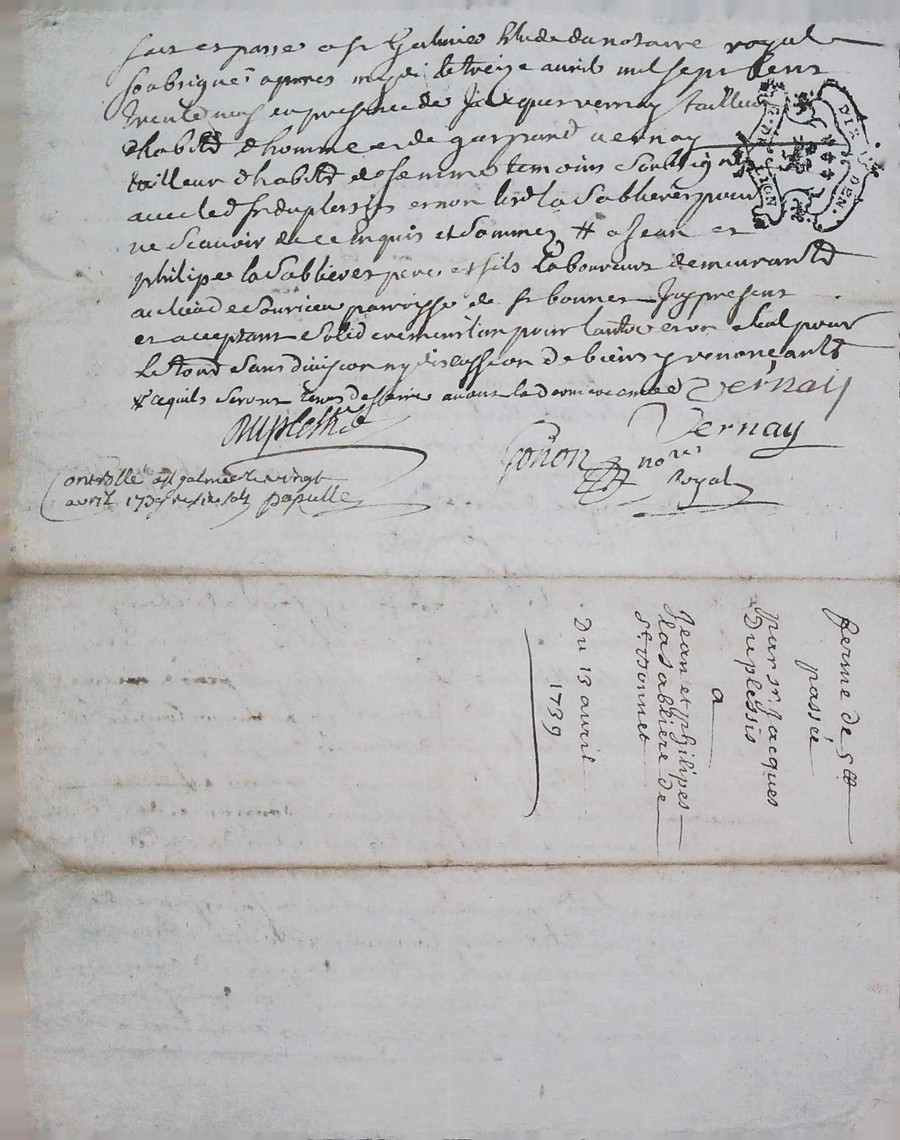 fait et passé a st Galmier Etude du notaire royal
soubsigné apres midy le treize avril mil sept cent
trente neuf en presence de Jacques vernay tailleur
d'habitd d'homme et de gaspard vernay
tailleur d'habitd de femme temoins soubsignes
avec led sr duplessis et non lesd la Sablieres pour
ne scavoir de ce enquis et sommez # a Jean et
philipe la Sablieres pere et fils laboureurs demeurantd
au lieu de parroisse de st bonnet Icy present
et acceptant solidairement l'un pour l'autre et un seul pour
le tout sans division ny discussion de biens y renonceantd
Vernay
Duplessis
Vernay
Gonon nore
Royal
Controllé a st galmier le vingt
avril 1739 papulle
GE. DE LION
DIX DEN.
ferme de 5tt
passée
par sr. Jacques
Duplessis
a
Jean et philipes
la sabliere de
st. Bonnet
Du 13 avril
1739